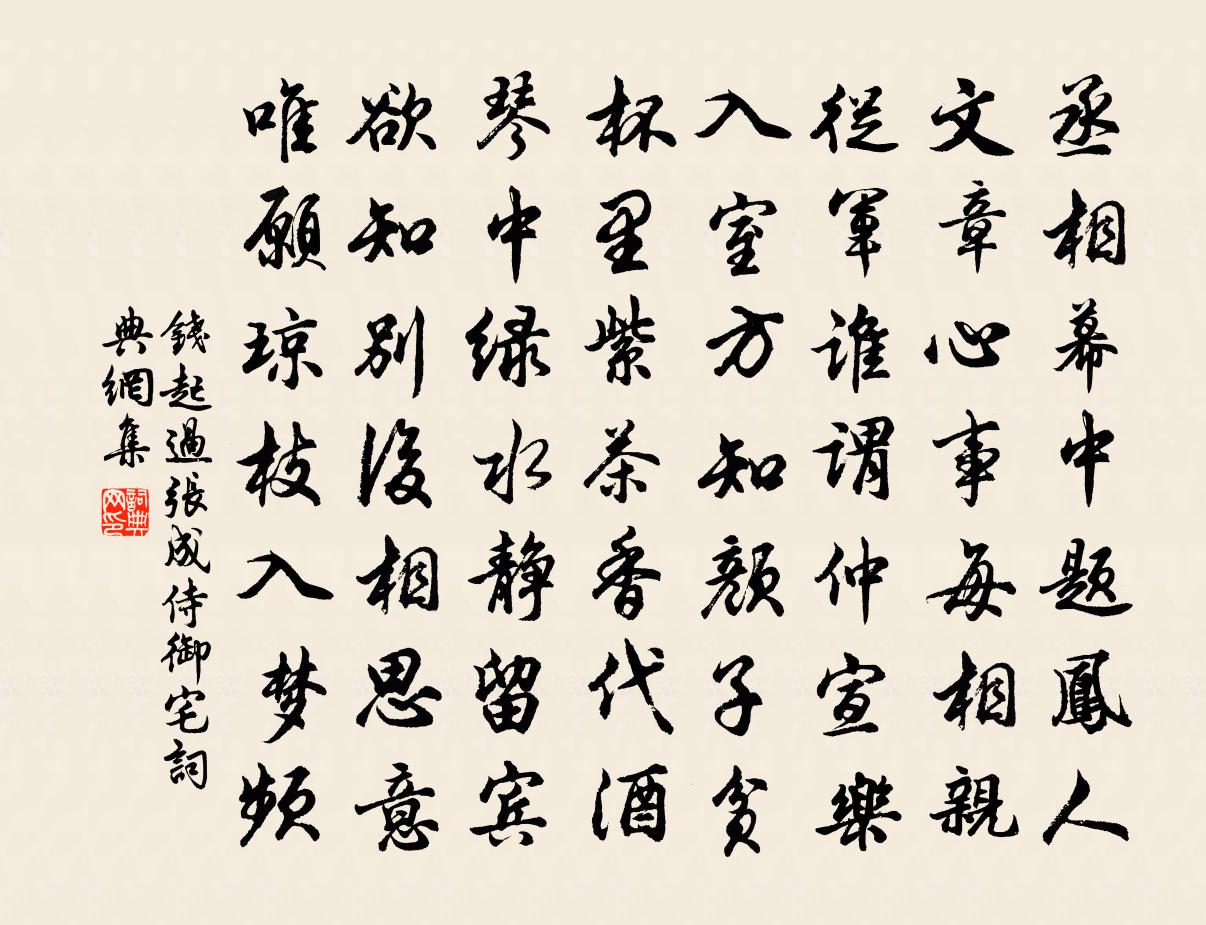 丞相幕中題鳳人
文章心事每相親
從軍誰謂仲宣樂
入室方知顏子貧
杯里紫茶香代酒
琴中緑水靜留宾
欲知別後相思意
唯願琼枝入梦頻
錢起過張成侍御宅詞
典網集
詞典
网印